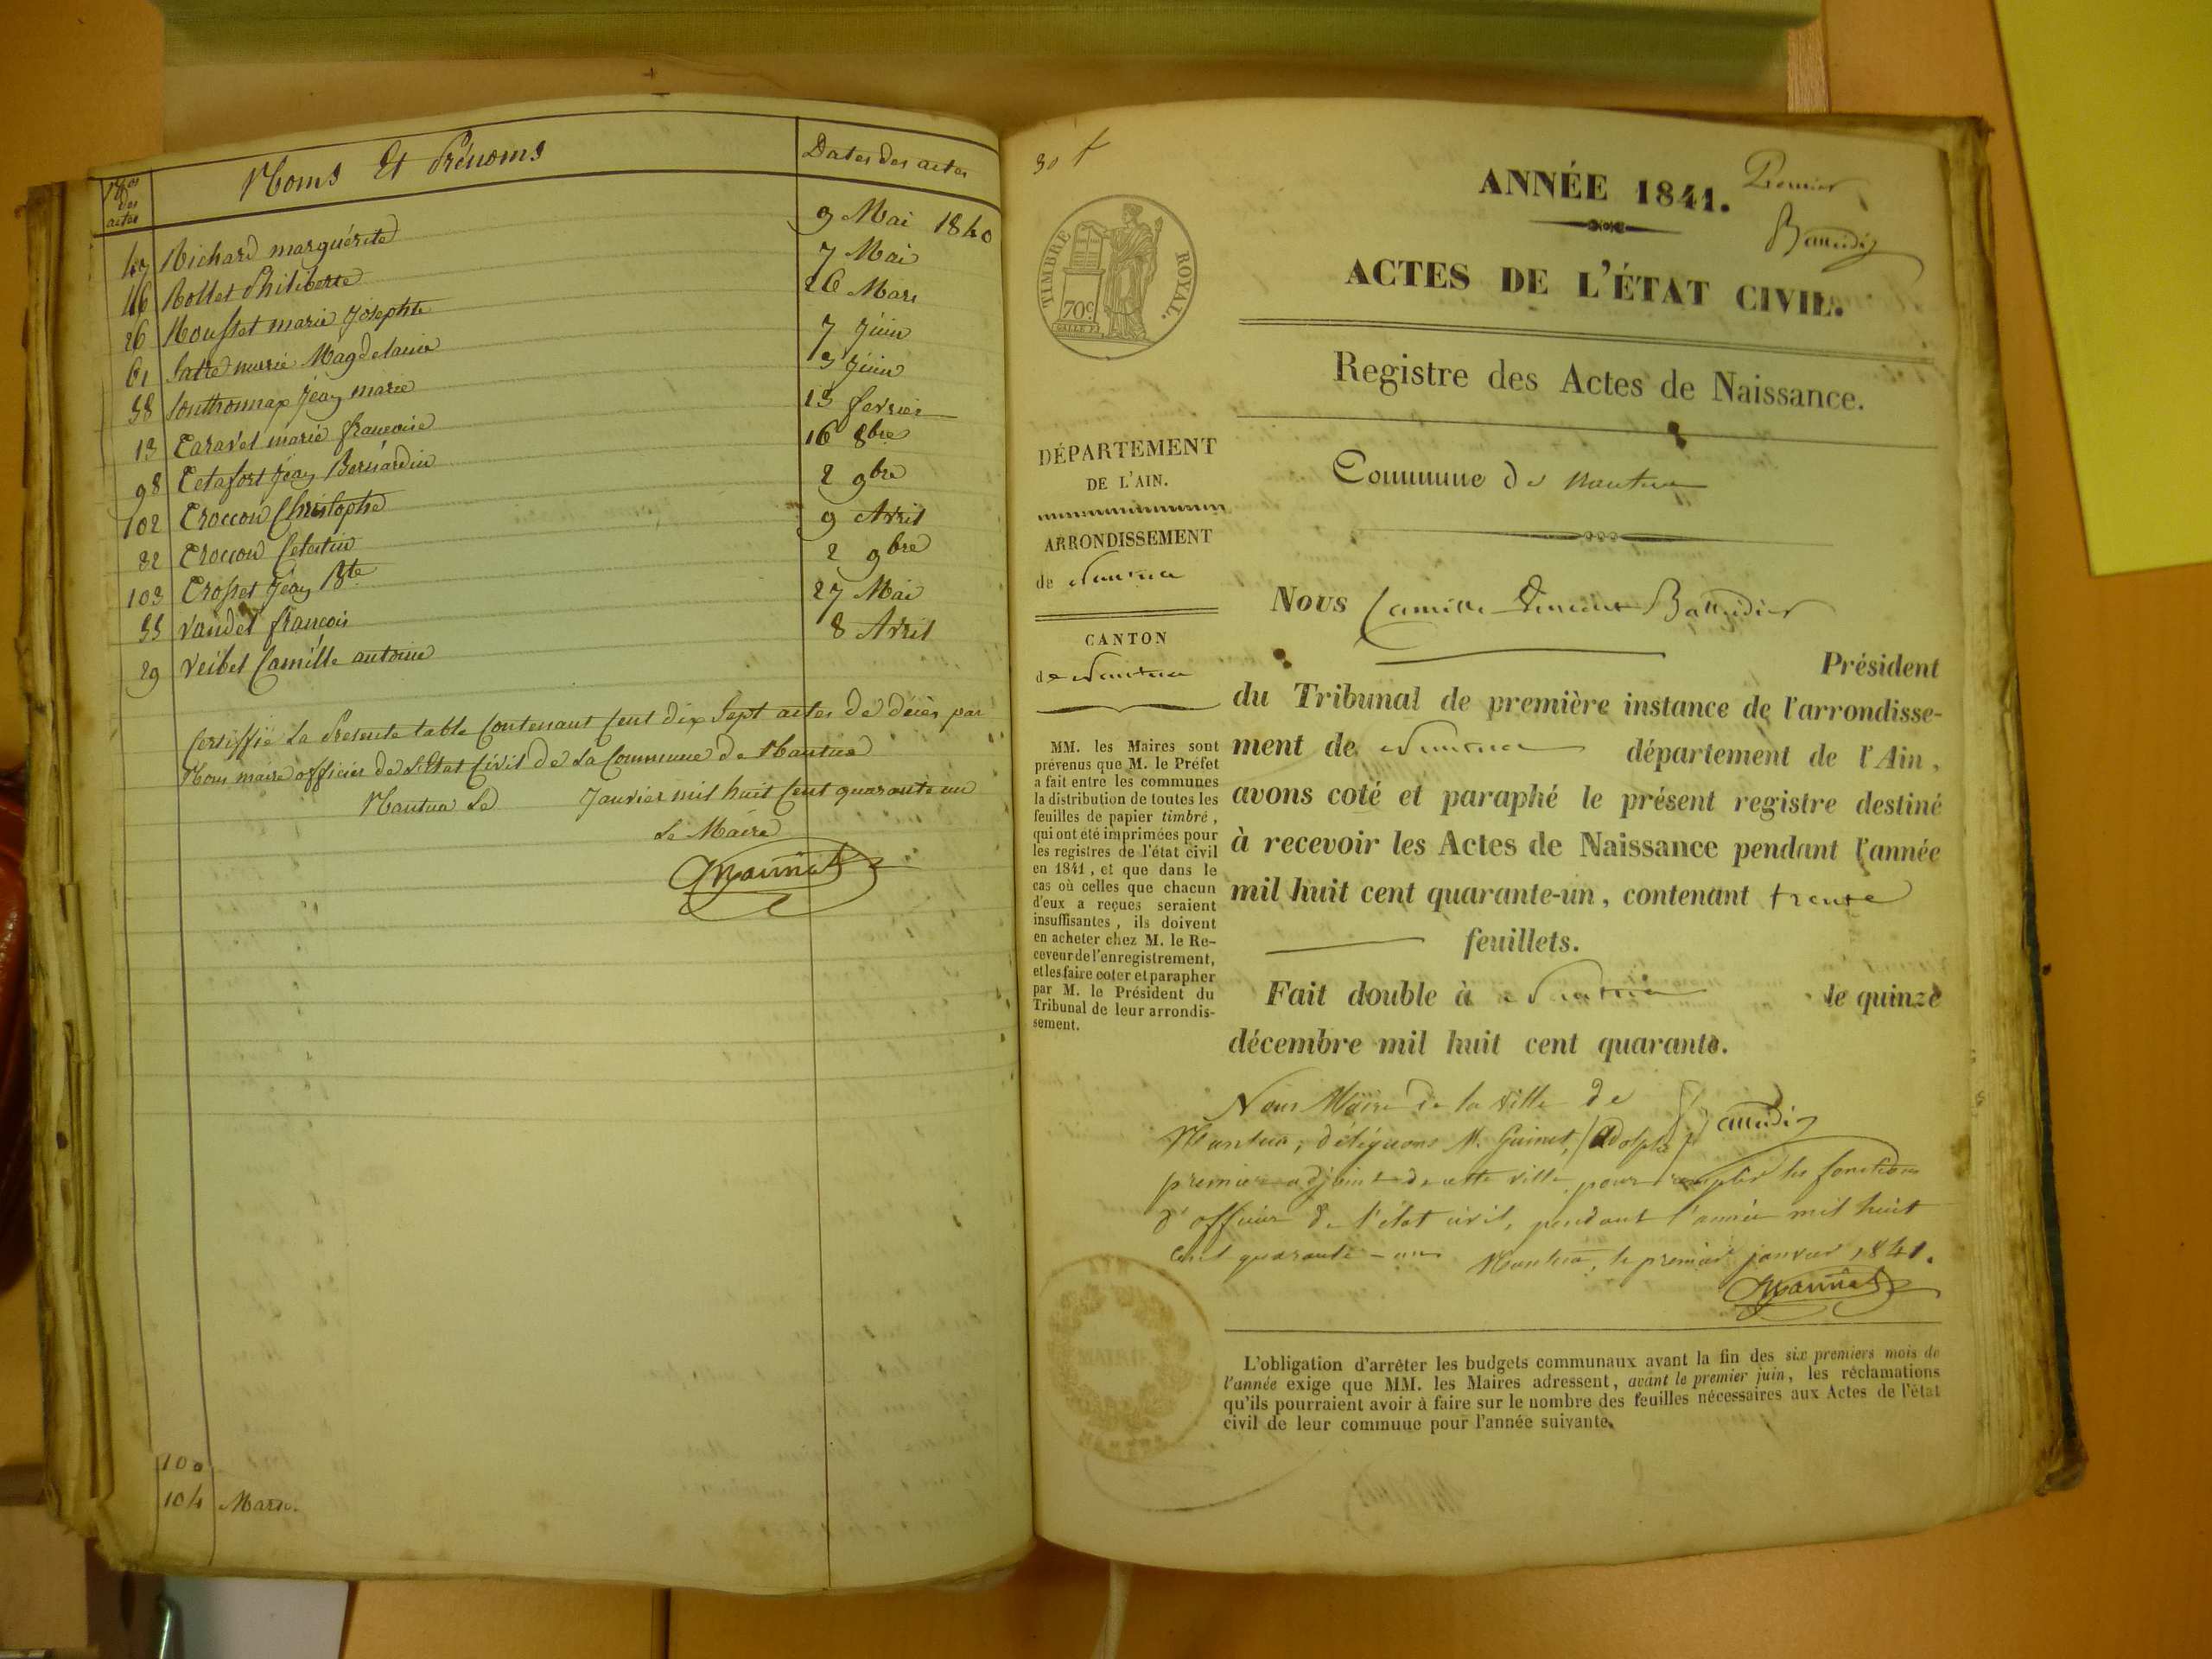 Nos des actes
Noms Et Prénoms
Dates des actes
47 Richard marguérite 9 Mai 1840
46 Rollet Philiberte 7 Mai
26 Rousset marie Josephte 26 Mars
61 Satre marie Magdelaine 7 Juin
58 Sonthonnax Jean marie 3 Juin
13 Taravel marie francoise 13 fevrier
98 Tetafort Jean Bernardin 16 8bre
102 Troccon Christophe 2 9bre
32 Troccon Celestin 9 Avril
103 Trosset Jean Bte 2 9bre
55 Vandel francois 27 Mai
29 Veibel Camille antoine 8 Avril
Certiffié La Presente table Contenant Cent dix Sept actes de décès par
Nous maire officier de L'Etat Civil de La Commune de Nantua
Nantua Le Janvier mil huit Cent quarante un
Le Maire
100
104 Marie.
30 f
ANNÉE 1841.
Premier
TIMBRE ROYAL.
70c
ACTES DE L'ÉTAT CIVIL.
Registre des Actes de Naissance.
DÉPARTEMENT
DE L'AIN.
ARRONDISSEMENT
de Nantua
CANTON
de Nantua
MM. les Maires sont
prévenus que M. le Préfet
a fait entre les communes
la distribution de toutes les
feuilles de papier timbré,
qui ont été imprimées pour
les registres de l'état civil
en 1841, et que dans le
cas où celles que chacun
d'eux a reçues seraient
insuffisantes, ils doivent
en acheter chez M. le Re-
ceveur de l'enregistrement,
et les faire coter et parapher
par M. le Président du
Tribunal de leur arrondis-
sement.
Commune de Nantua
Nous Camille Vincent Baudier
Président
du Tribunal de première instance de l'arrondisse-
ment de Nantua département de l'Ain,
avons coté et paraphé le présent registre destiné
à recevoir les Actes de Naissance pendant l'année
mil huit cent quarante-un, contenant trente
feuillets.
Fait double à Nantua le quinze
décembre mil huit cent quarante.
Nous Maire de la ville de
Nantua, déléguons M. Guinet, (Adolphe)
premier adjoint de cette ville pour remplir les fonctions
d'officier de l'état civil, pendant l'année mil huit
cent quarante-un. Nantua, le premier janvier 1841.
AIN
MAIRIE
NANTUA
L'obligation d'arrêter les budgets communaux avant la fin des six premiers mois de
l'année exige que MM. les Maires adressent, avant le premier juin, les réclamations
qu'ils pourraient avoir à faire sur le nombre des feuilles nécessaires aux Actes de l'état
civil de leur commune pour l'année suivante.